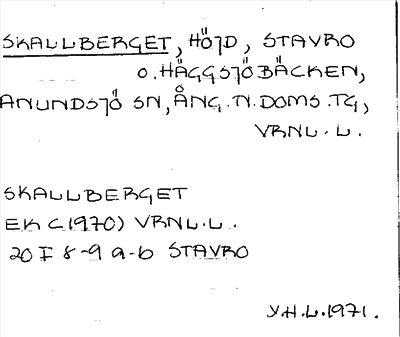 SKALLBERGET, HÖJD, STAVRO
O. HÄGGSJÖBÄCKEN,
ANUNDSJÖ SN, ÅNG. N. DOMS. TG,
VRNL. L.
SKALLBERGET
EK C (1970) VRNL. L.
20 I 8-9 a-b STAVRO
Y.H.L. 1971.